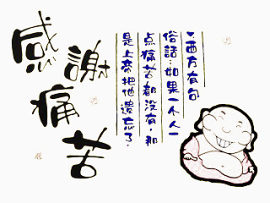 感謝痛苦
西方有句
俗話:如果一个人一
点痛苦都沒有,那
是上帝把他遺忘了.